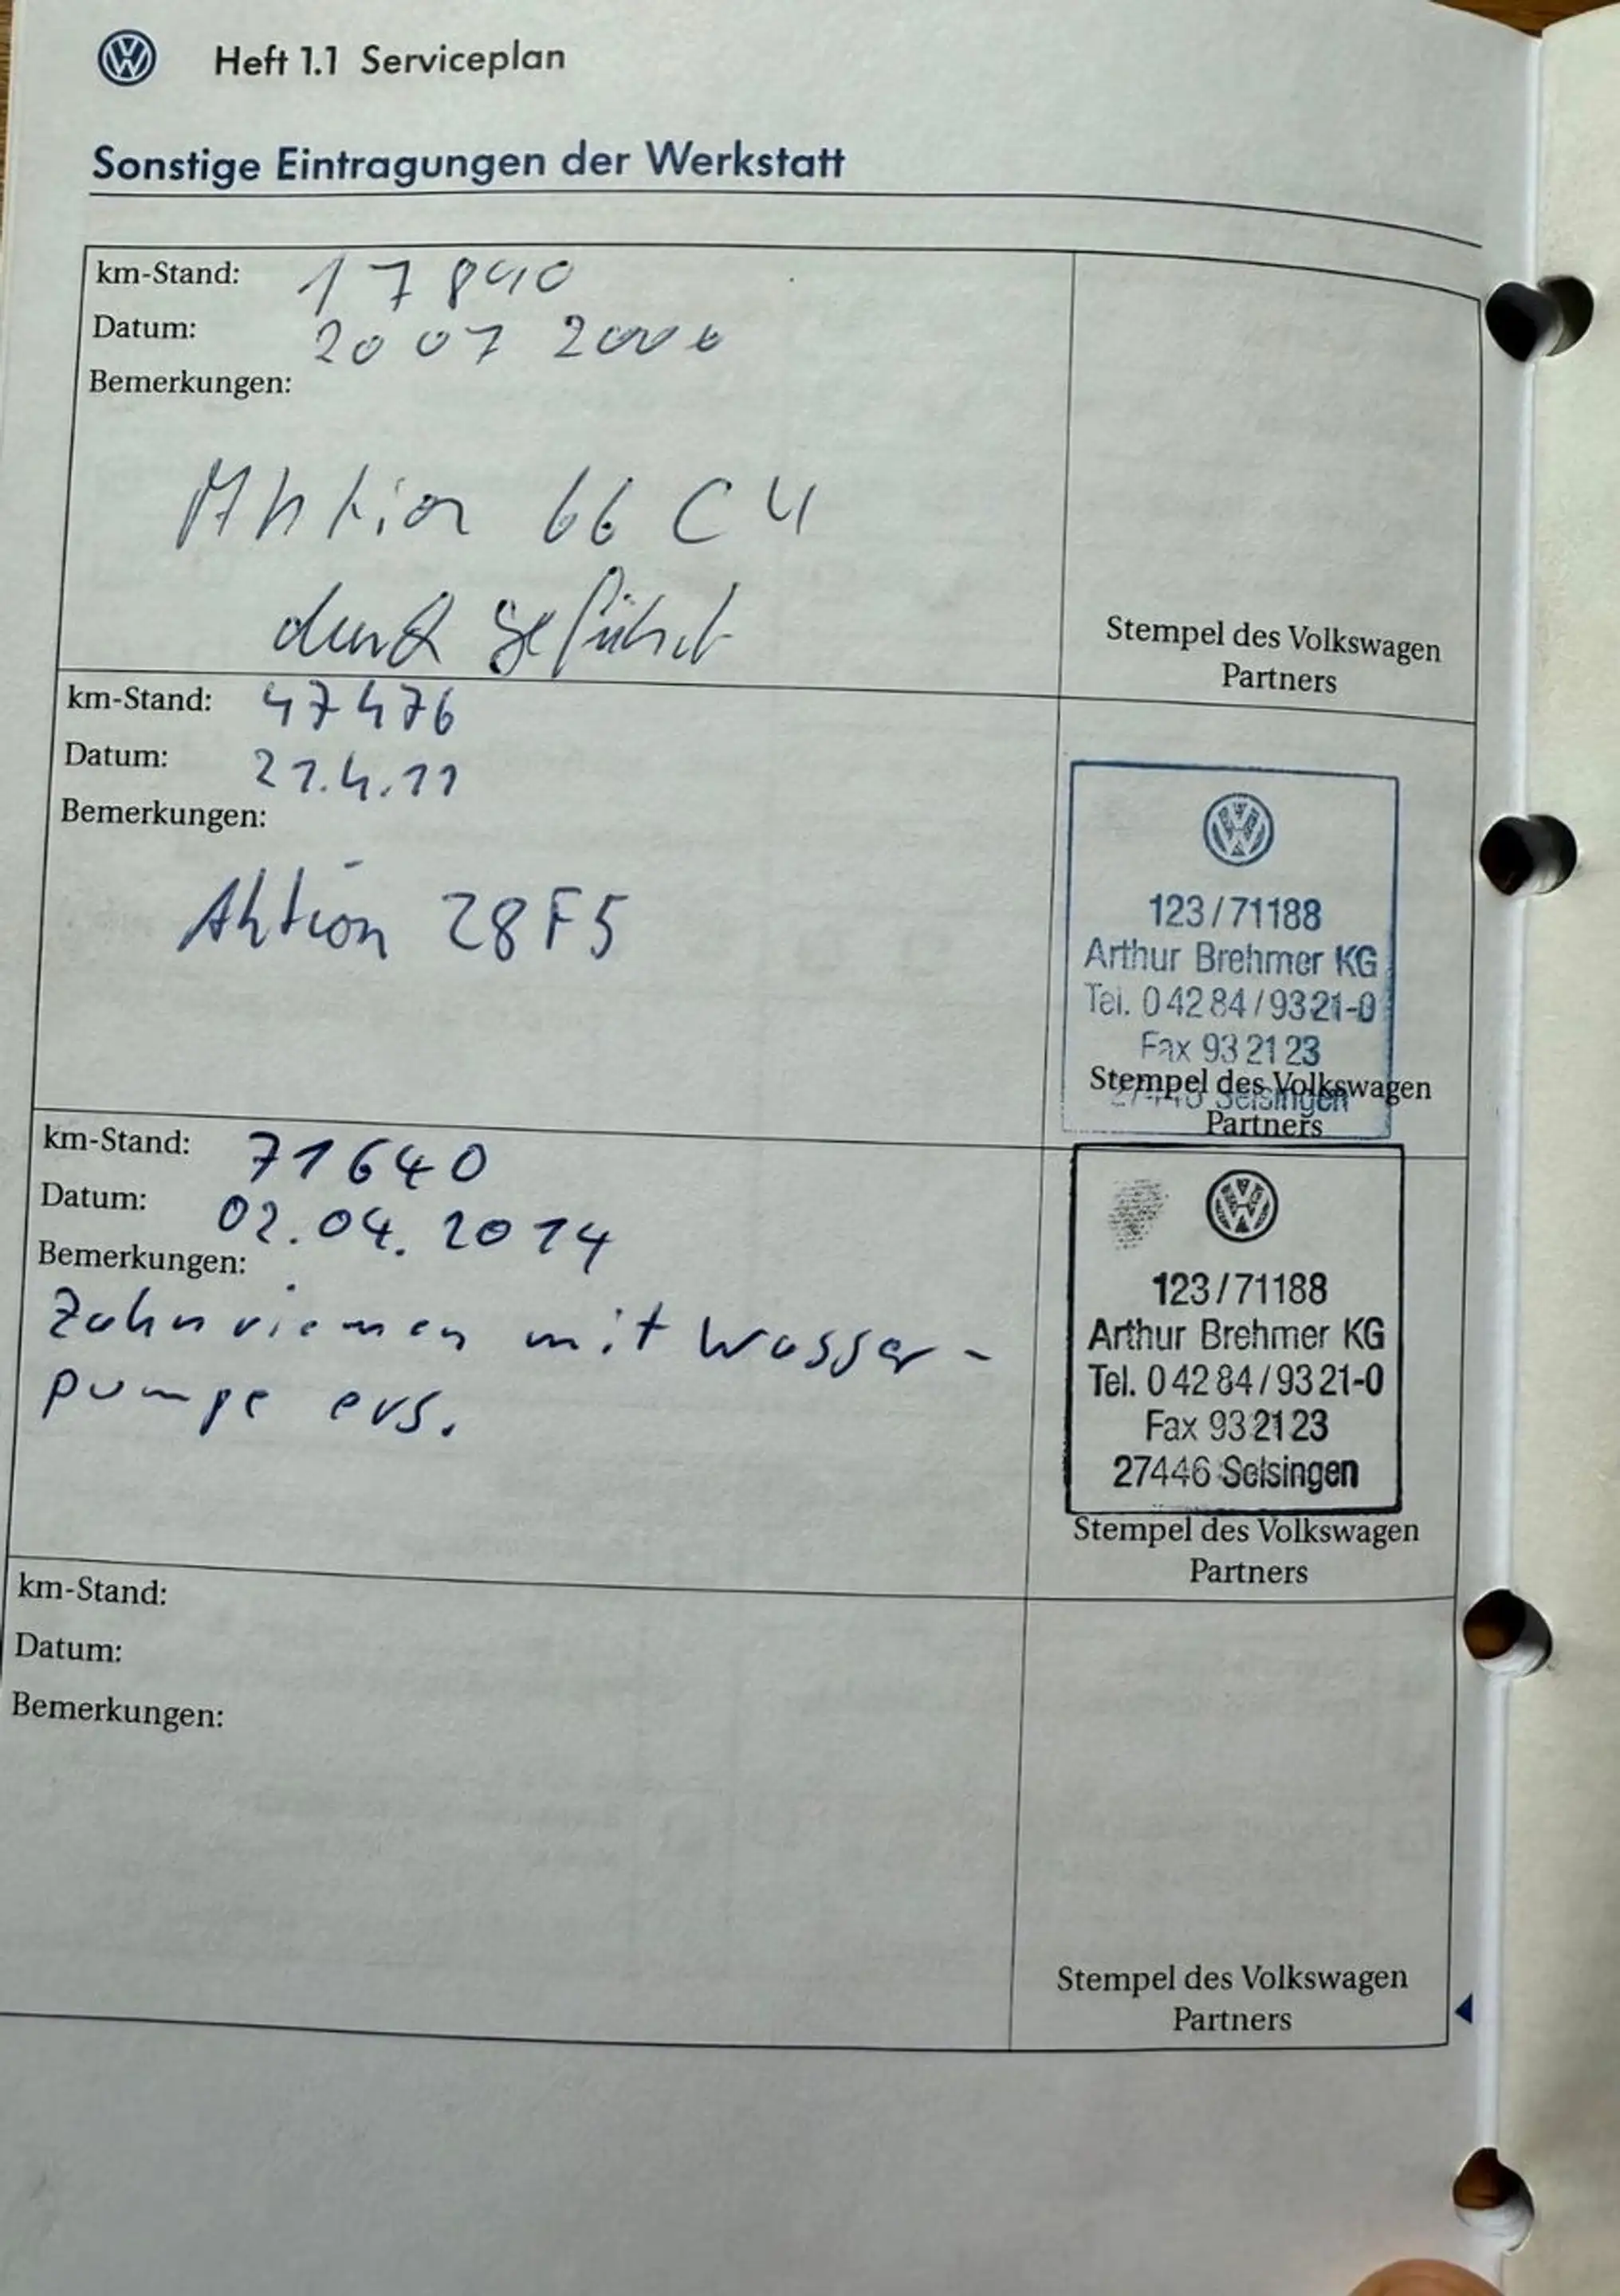 Heft 1.1 Serviceplan
Sonstige Eintragungen der Werkstatt
km-Stand: 17840
Datum: 20 07 2006
Bemerkungen:
Aktion 66 C4
durchgeführt
Stempel des Volkswagen
Partners
km-Stand: 47476
Datum: 21.4.11
Bemerkungen:
Aktion 28F5
123/71188
Arthur Brehmer KG
Tel. 0 42 84/93 21-0
Fax 93 21 23
27446 Selsingen
Stempel des Volkswagen
Partners
km-Stand: 71640
Datum: 02.04.2014
Bemerkungen:
Zahnriemen mit Wasser-
pumpe ers.
123/71188
Arthur Brehmer KG
Tel. 0 42 84/93 21-0
Fax 93 21 23
27446 Selsingen
Stempel des Volkswagen
Partners
km-Stand:
Datum:
Bemerkungen:
Stempel des Volkswagen
Partners